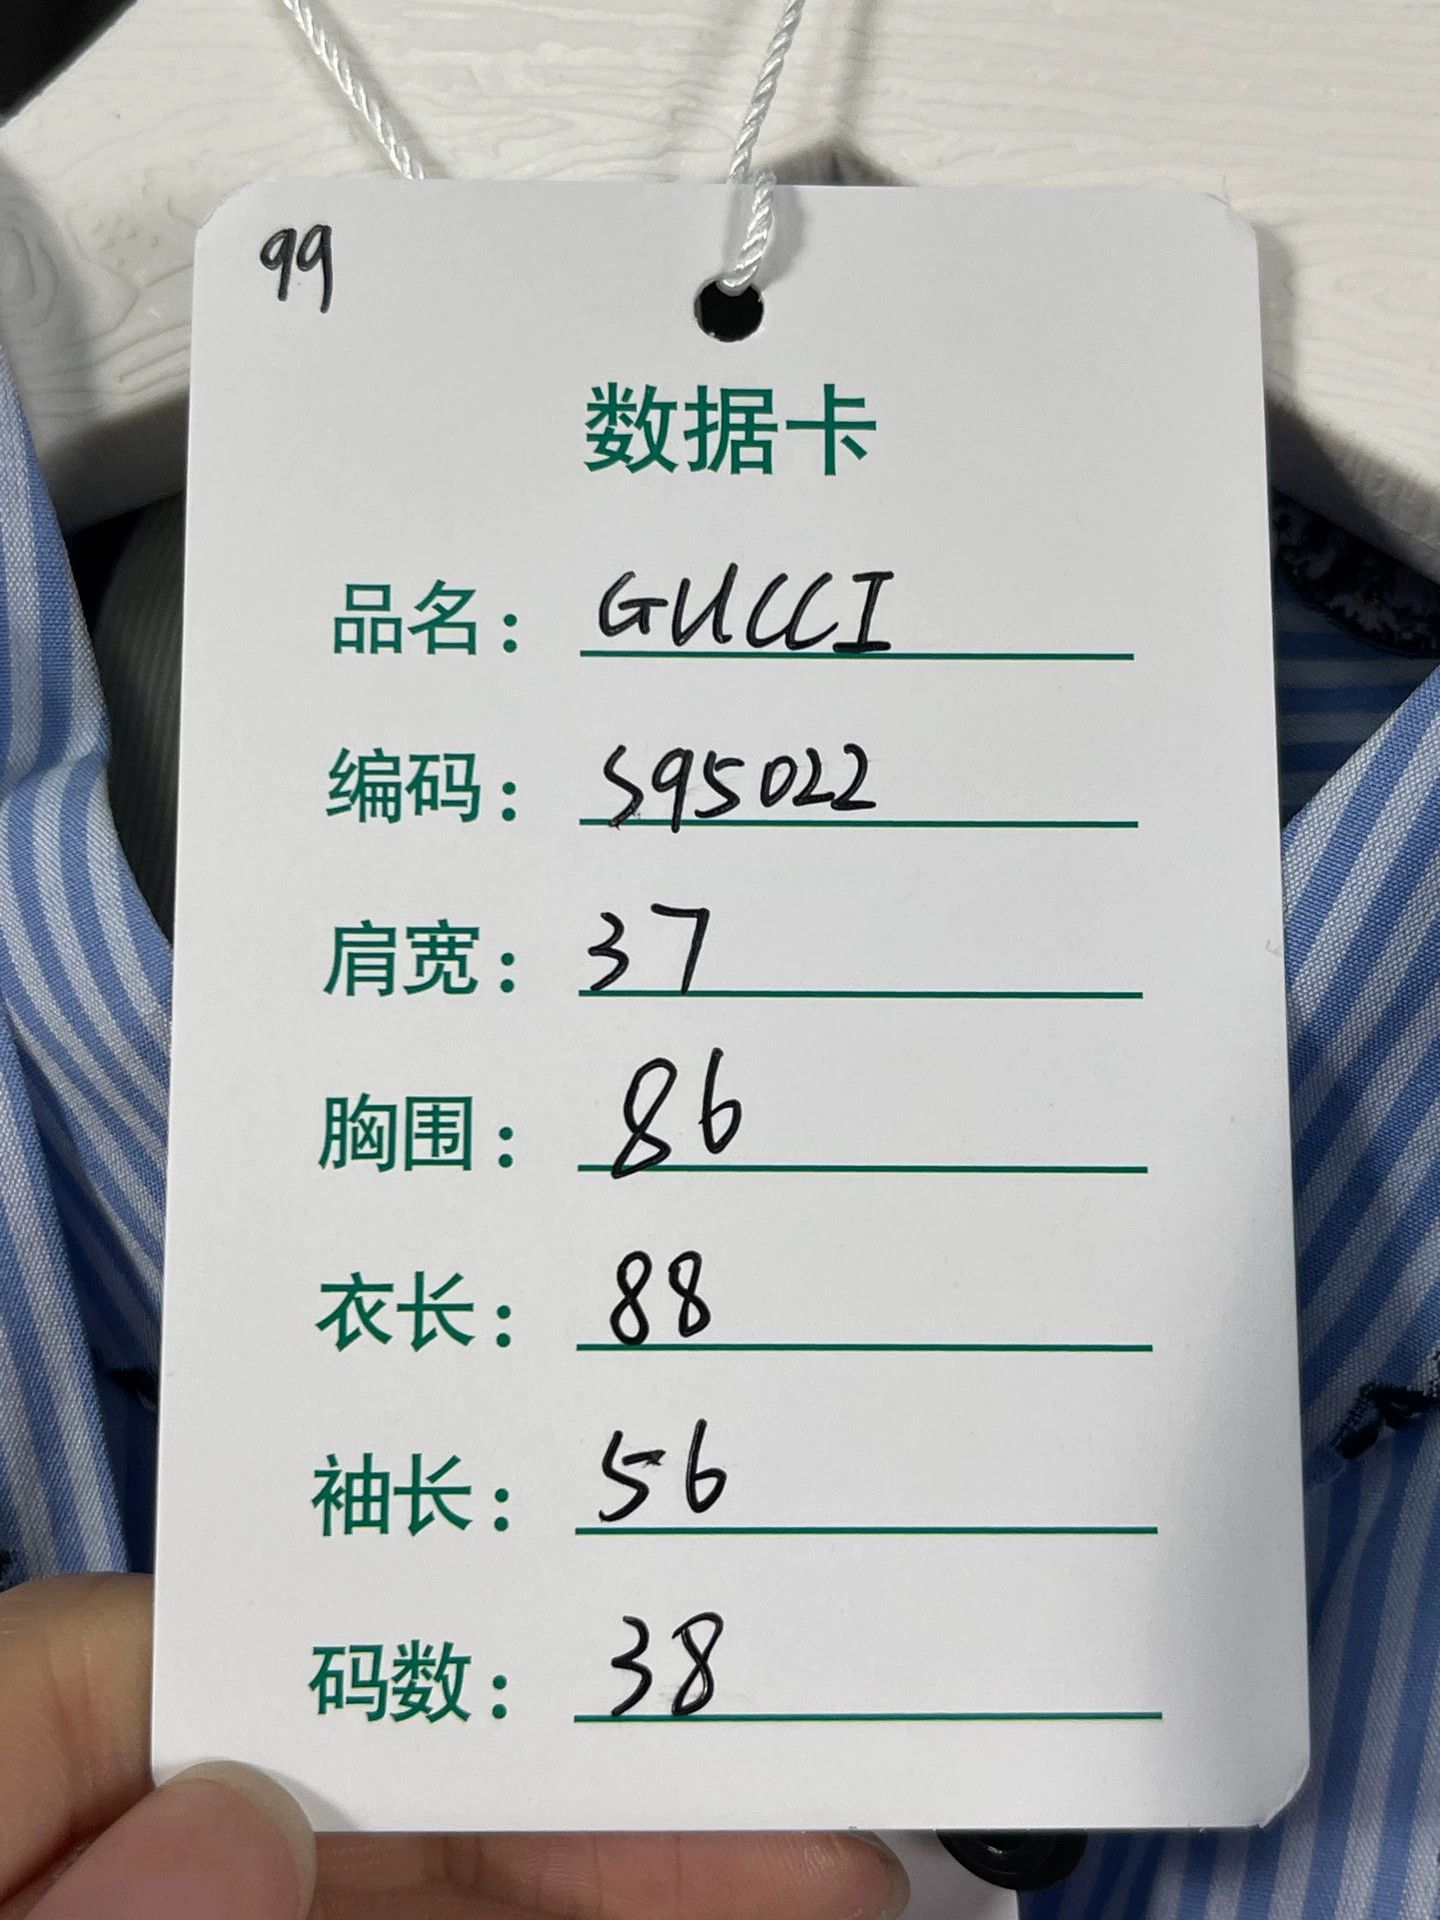 99
数据卡
品名：GUCCI
编码：S95022
肩宽：37
胸围：86
衣长：88
袖长：56
码数：38